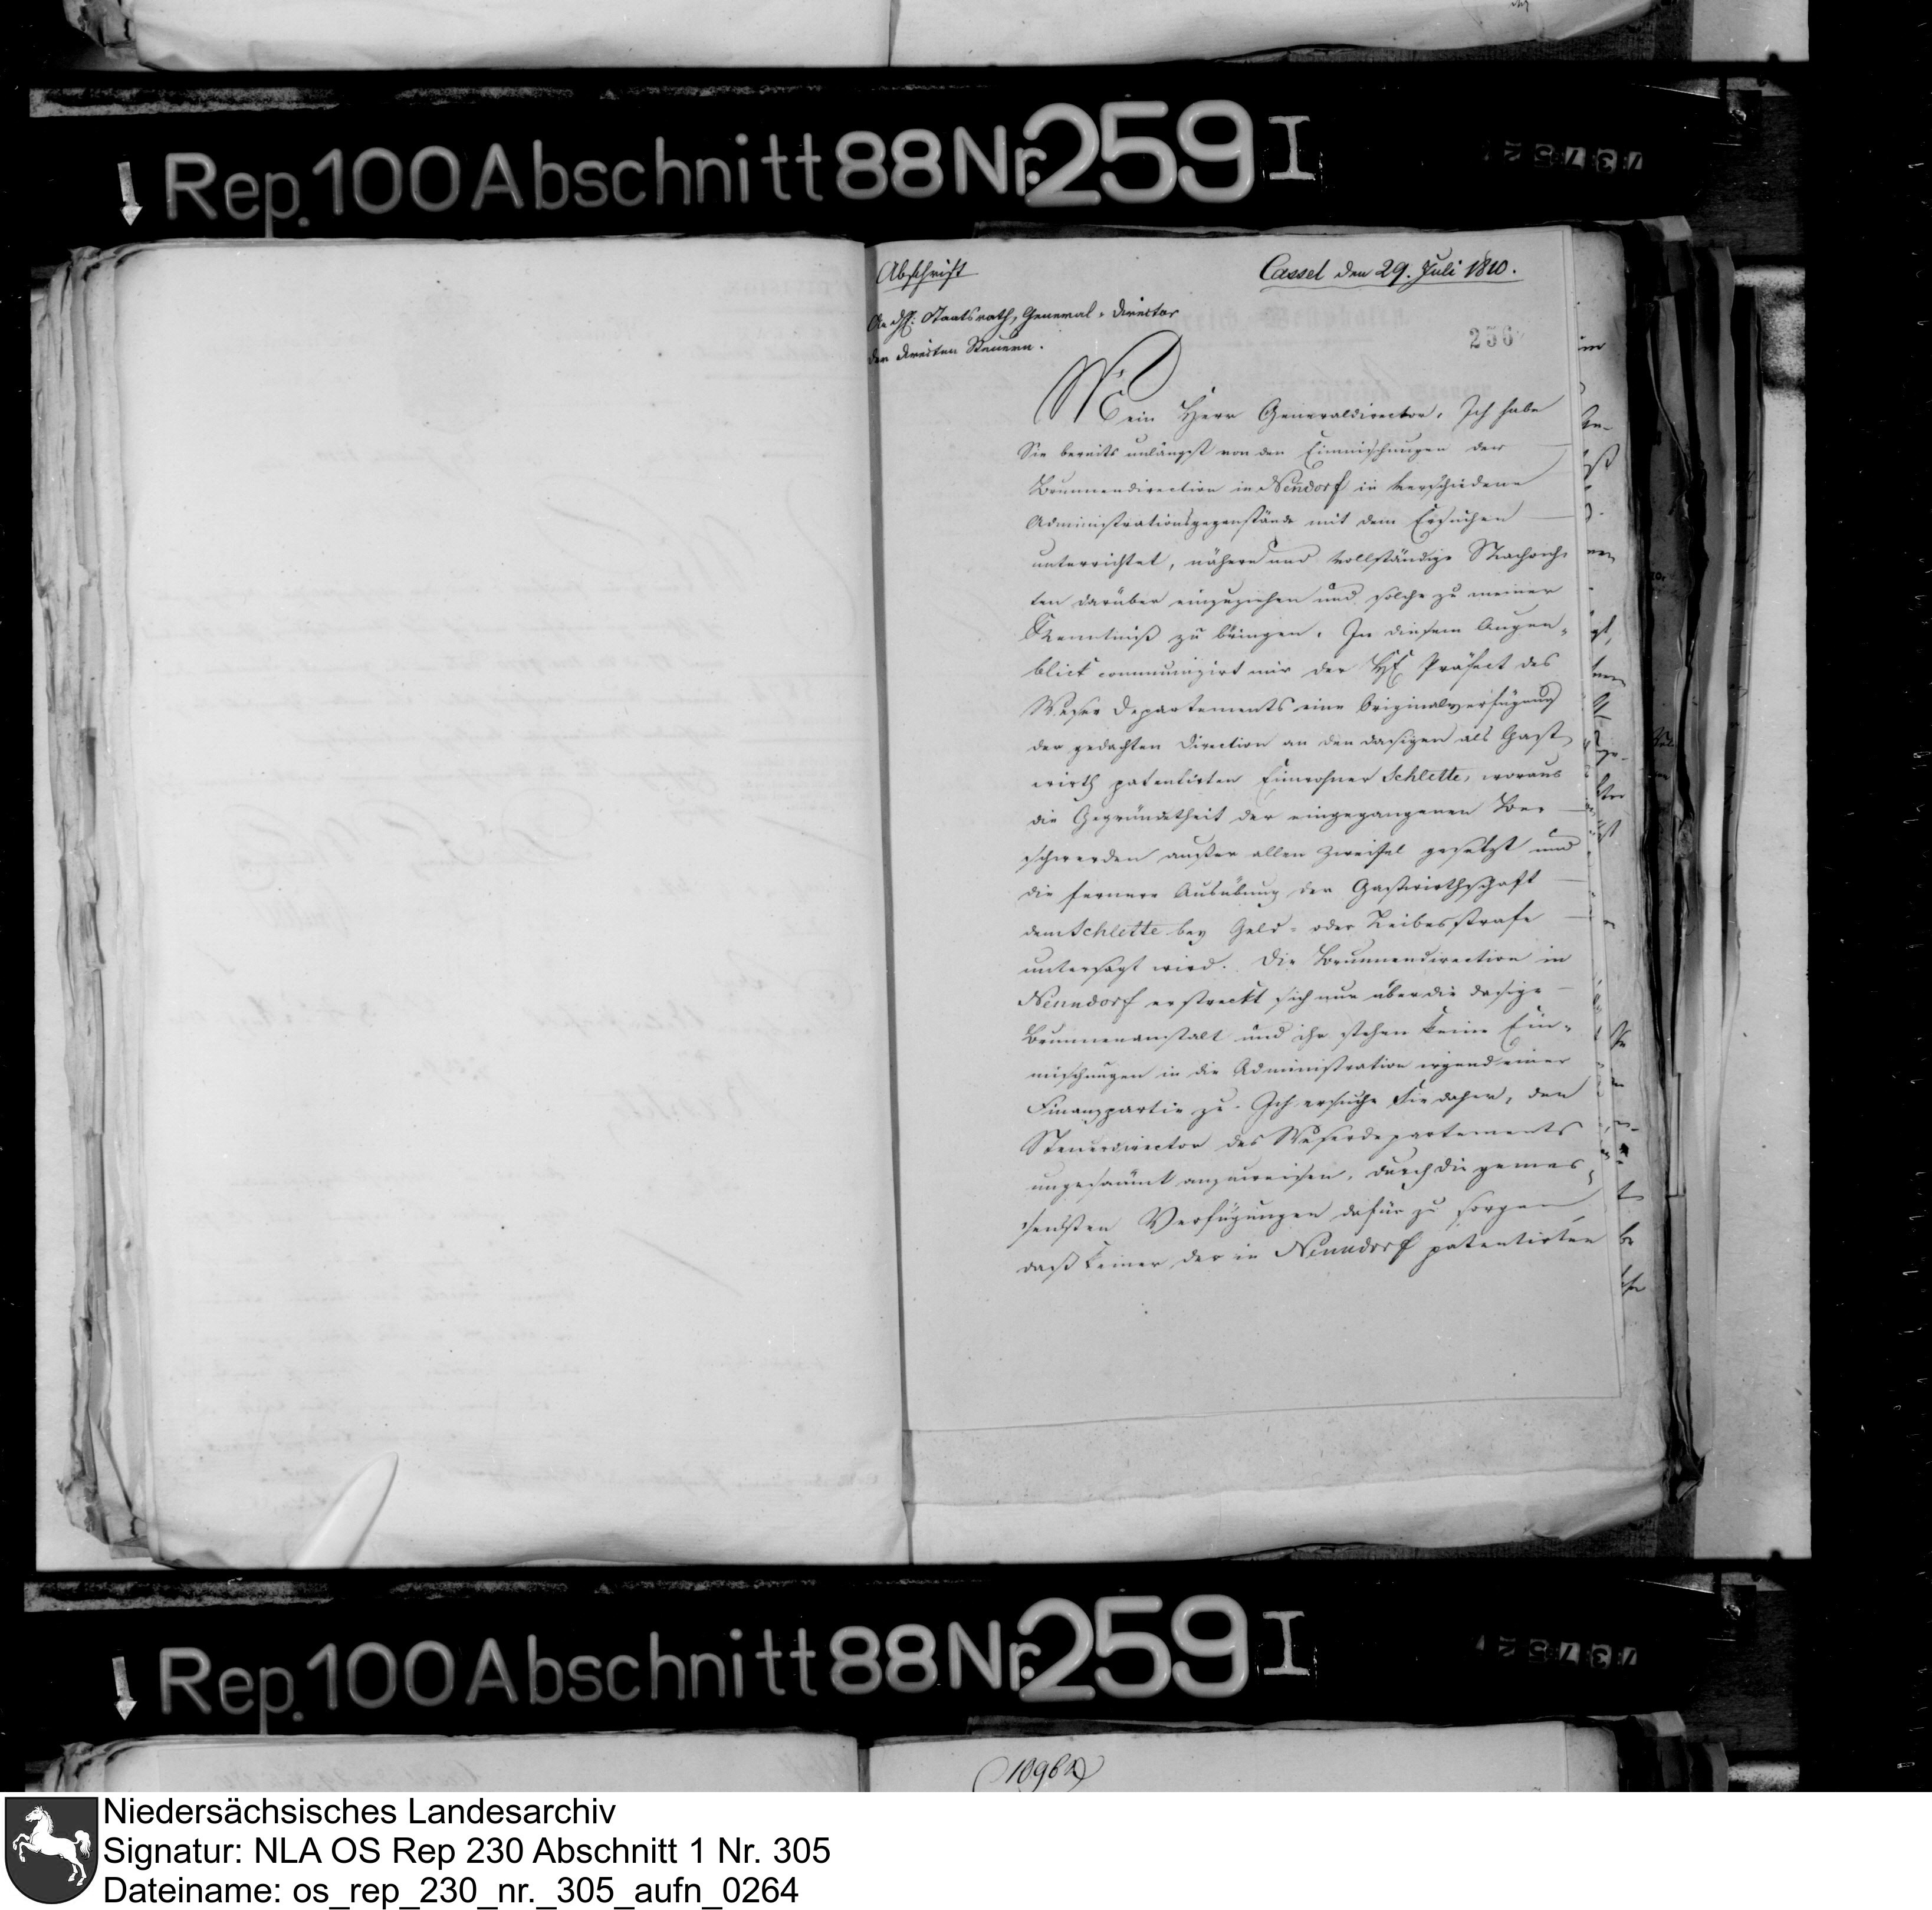 Rep. 100 Abschnitt 88 Nr. 259 I
Abschrift
Cassel den 29. Juli 1810.
An H: Staatsrath, General-Director
der directen Steuern.
256
Mein Herr Generaldirector, Ich habe
Sie bereits unlängst von den Einmischungen der
Brunnendirection in Nendorf in verschiedene
Administrationsgegenstände mit dem Ersuchen
unterrichtet, nähere und vollständige Nachrich-
ten darüber einzuziehen und solche zu meiner
Kenntniß zu bringen. In diesem Augen-
blick communizirt mir der H Präfect des
Weser Departements eine Originalverfügung
der gedachten Direction an den dasigen als Gast-
wirth patentirten Einwohner Schlette, woraus
die Gegründetheit der eingegangenen Be-
schwerden außer allen Zweifel gesetzt und
die fernere Ausübung der Gastwirthschaft
dem Schlette bey Geld- oder Leibesstrafe
untersagt wird. Die Brunnendirection in
Nenndorf erstreckt sich nur über die dasige
Brunnenanstalt und ihr stehen keine Ein-
mischungen in die Administration irgend einer
Finanzpartie zu. Ich ersuche Sie daher, den
Steuerdirector des Weserdepartements
ungesäumt anzuweisen, durch die gemes-
sensten Verfügungen dafür zu sorgen
daß keiner der in Nenndorf patentirten
Rep. 100 Abschnitt 88 Nr. 259 I
Niedersächsisches Landesarchiv
Signatur: NLA OS Rep 230 Abschnitt 1 Nr. 305
Dateiname: os_rep_230_nr._305_aufn_0264